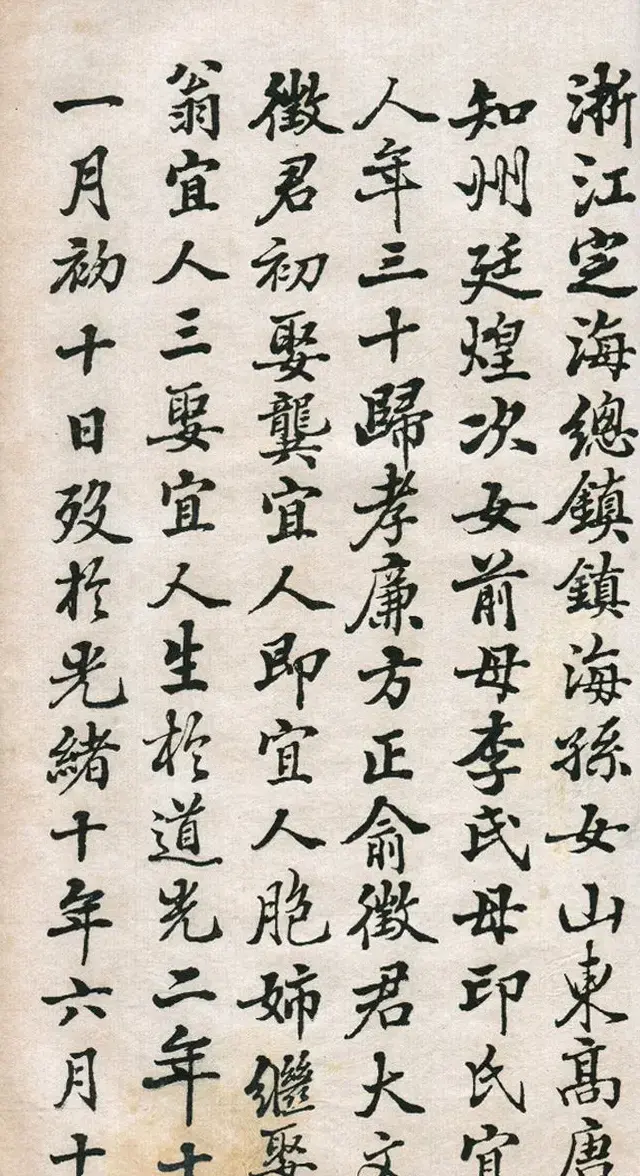 浙江定海總鎮鎮海孫女山東高唐
知州廷煌次女前母李氏母印氏宜
人年三十歸孝廉方正俞徵君大文
徵君初娶龔宜人即宜人胞姉繼娶
翁宜人三娶宜人生於道光二年十
一月初十日歿於光緒十年六月十